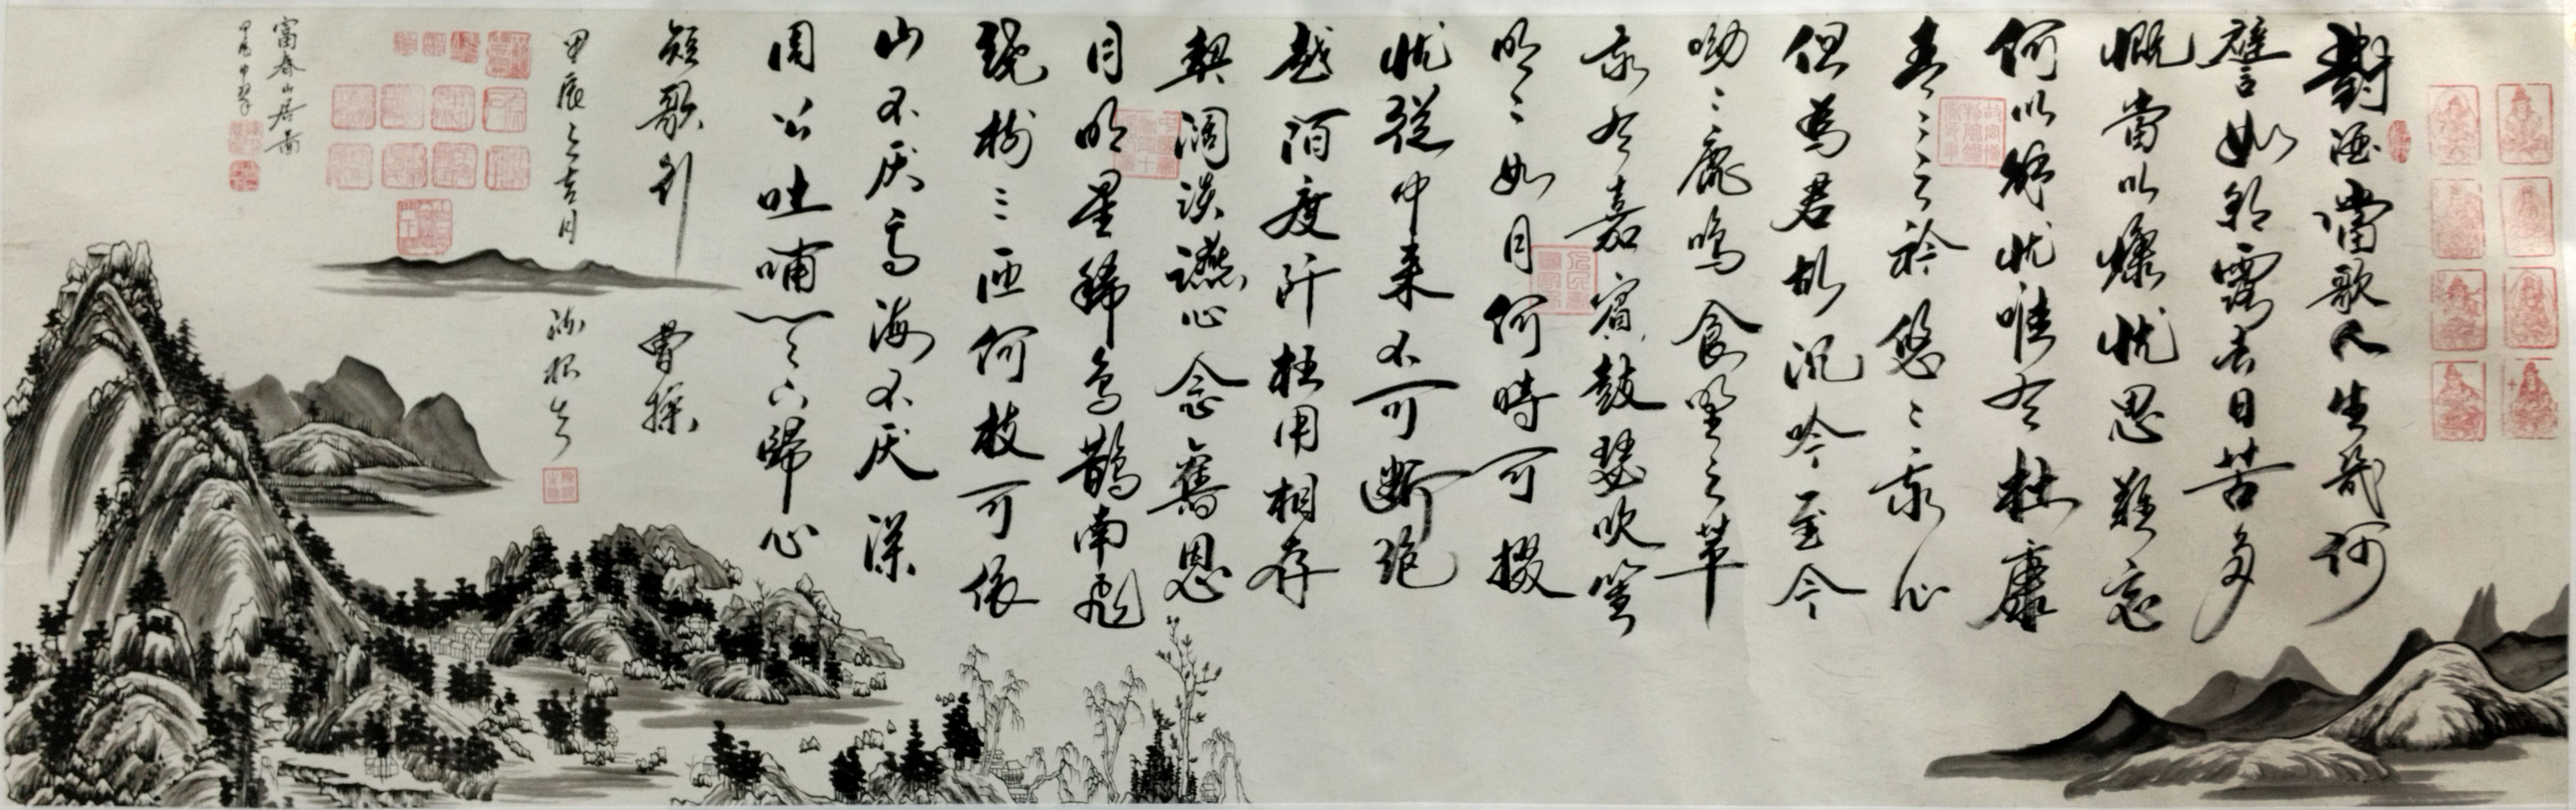 對酒當歌人生幾何
譬如朝露去日苦多
慨當以慷忧思難忘
何以解忧唯有杜康
青〻子衿悠〻我心
但為君故沉吟至今
呦〻鹿鳴食野之苹
我有嘉賓鼓瑟吹笙
明〻如月何時可掇
忧從中來不可斷絕
越陌度阡枉用相存
契闊談讌心念舊恩
月明星稀烏鵲南飛
繞樹三匝何枝可依
山不厌高海不厌深
周公吐哺天下歸心
短歌行 曹操
甲辰之吉月
富春山居圖
甲辰